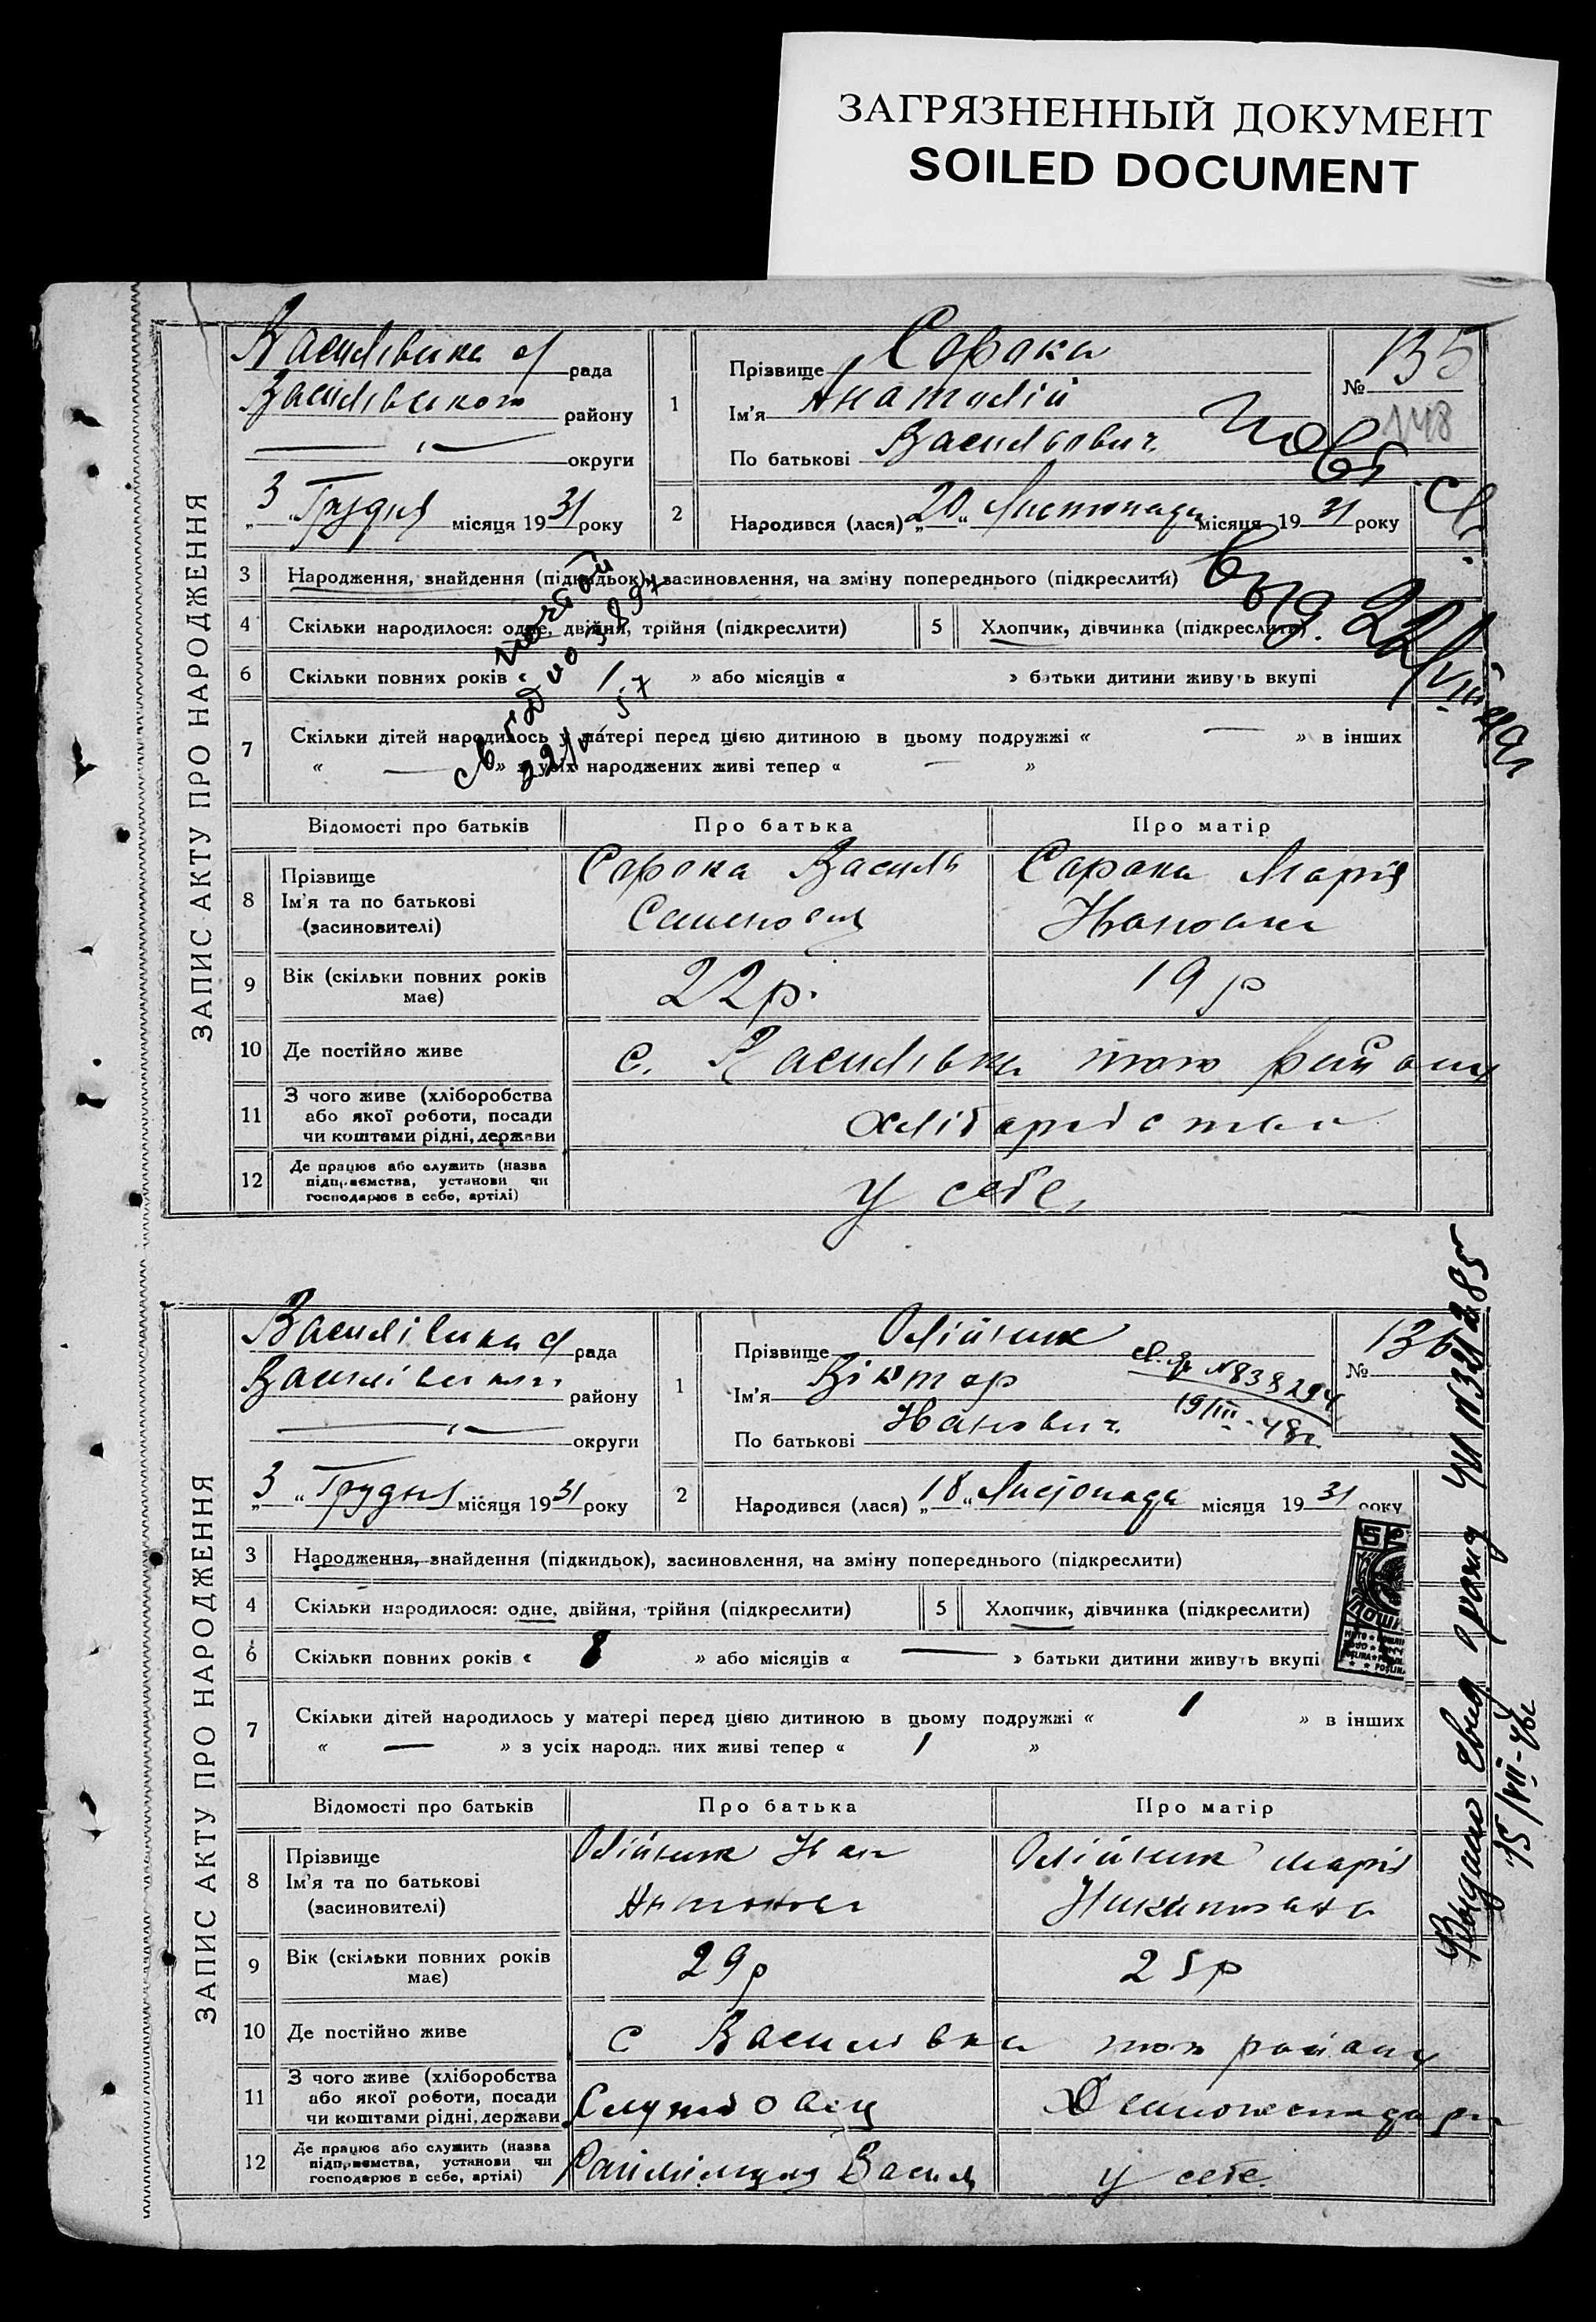 ЗАГРЯЗНЕННЫЙ ДОКУМЕНТ
SOILED DOCUMENT
ЗАПИС АКТУ ПРО НАРОДЖЕННЯ
Василівська с/ рада
Василівського району
округи
„3“ Грудня місяця 1931 року
1
Прізвище Сорока
Ім'я Анатолій
По батькові Васильович
№ 135
148
2
Народився (лася) „20“ Листопада місяця 1931 року
3 Народження, знайдення (підкидьок), засиновлення, на зміну попереднього (підкреслити)
4 Скільки народилося: одне, двійня, трійня (підкреслити)
5 Хлопчик, дівчинка (підкреслити)
6 Скільки повних років « 1 » або місяців « » батьки дитини живуть вкупі
7 Скільки дітей народилось у матері перед цією дитиною в цьому подружжі « — » в інших
« — » з усіх народжених живі тепер « — »
повт. св.
выд. 22/VIII
Відомості про батьків
Про батька
Про матір
8 Прізвище
Ім'я та по батькові
(засиновителі)
Сорока Василь
Семенович
Сорока Марія
Івановна
9 Вік (скільки повних років
має)
22 р.
19 р
10 Де постійно живе
с. Василівка того району
11 З чого живе (хліборобства
або якої роботи, посади
чи коштами рідні, держави
хліборобство
12 Де працює або служить (назва
підприємства, установи чи
господарює в себе, артілі)
у себе
ЗАПИС АКТУ ПРО НАРОДЖЕННЯ
Василівська с/ рада
Василівського району
округи
„3“ Грудня місяця 1931 року
1
Прізвище Олійник
Ім'я Віктор
По батькові Іванович
№ 136
№838294
19/III-48г.
2
Народився (лася) „18“ Листопада місяця 1931 року
3 Народження, знайдення (підкидьок), засиновлення, на зміну попереднього (підкреслити)
4 Скільки народилося: одне, двійня, трійня (підкреслити)
5 Хлопчик, дівчинка (підкреслити)
6 Скільки повних років « 8 » або місяців « — » батьки дитини живуть вкупі
7 Скільки дітей народилось у матері перед цією дитиною в цьому подружжі « 1 » в інших
« — » з усіх народж. них живі тепер « 1 »
5
Відомості про батьків
Про батька
Про матір
8 Прізвище
Ім'я та по батькові
(засиновителі)
Олійник Іван
Антонов
Олійник Марія
Никиповна
9 Вік (скільки повних років
має)
29 р
25 р
10 Де постійно живе
с Василівка того району
11 З чого живе (хліборобства
або якої роботи, посади
чи коштами рідні, держави
Службовец
Домогосподарка
12 Де працює або служить (назва
підприємства, установи чи
господарює в себе, артілі)
у себе.
15/VII-46г